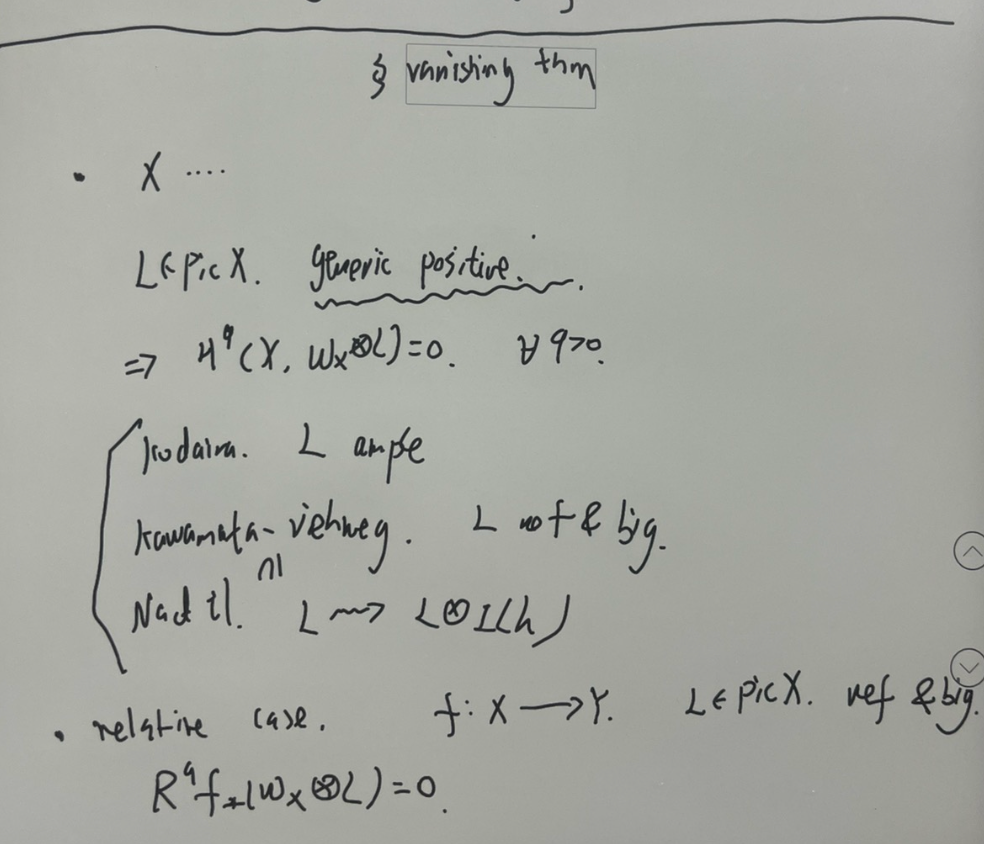 § vanishing thm
• X ....
L ∈ Pic X. generic positive.
⇒ H^q (X, ω_X ⊗ L) = 0. ∀ q > 0.
Kodaira. L ample
Kawamata-Viehweg. L nef & big.
∩|
Nadel. L ⇝ L ⊗ I(h)
• relative case. f: X → Y. L ∈ Pic X. nef & big.
R^q f_* (ω_X ⊗ L) = 0.